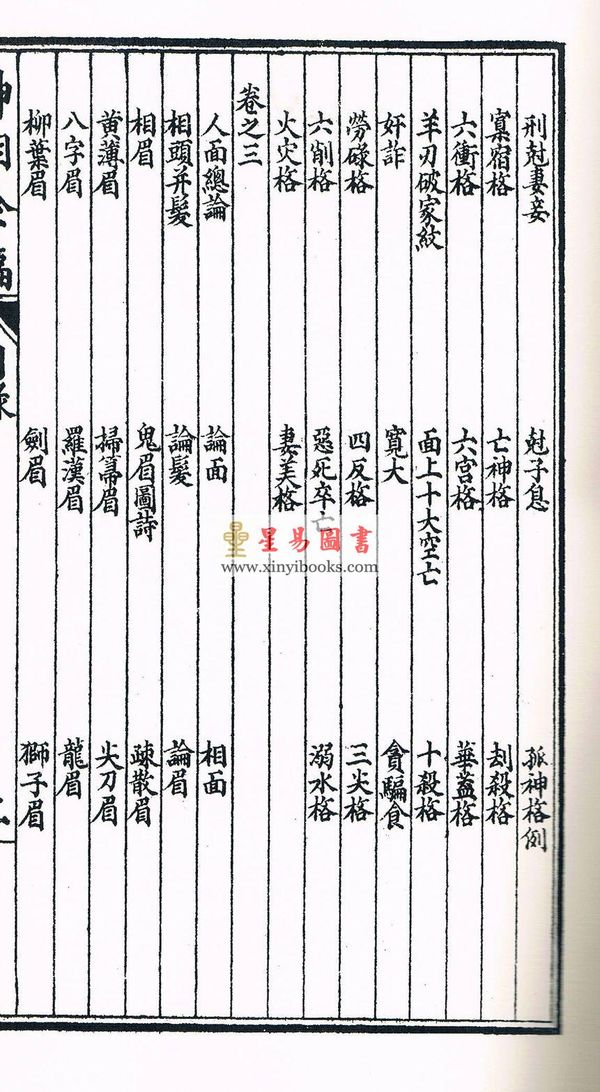 刑尅妻妾 尅子息 孤神格例
寡宿格 亡神格 刦殺格
六衝格 六宮格 華蓋格
羊刃破家紋 面上十大空亡 十殺格
奸詐 寬大 貪騙食
勞碌格 四反格 三尖格
六削格 惡死卒亡 溺水格
火灾格 妻美格
卷之三
人面總論 論面 相面
相頭并髮 論髮 論眉
相眉 鬼眉圖詩 疎散眉
黄薄眉 掃箒眉 尖刀眉
八字眉 羅漢眉 龍眉
柳葉眉 劍眉 獅子眉
星易圖書
www.xinyibooks.com